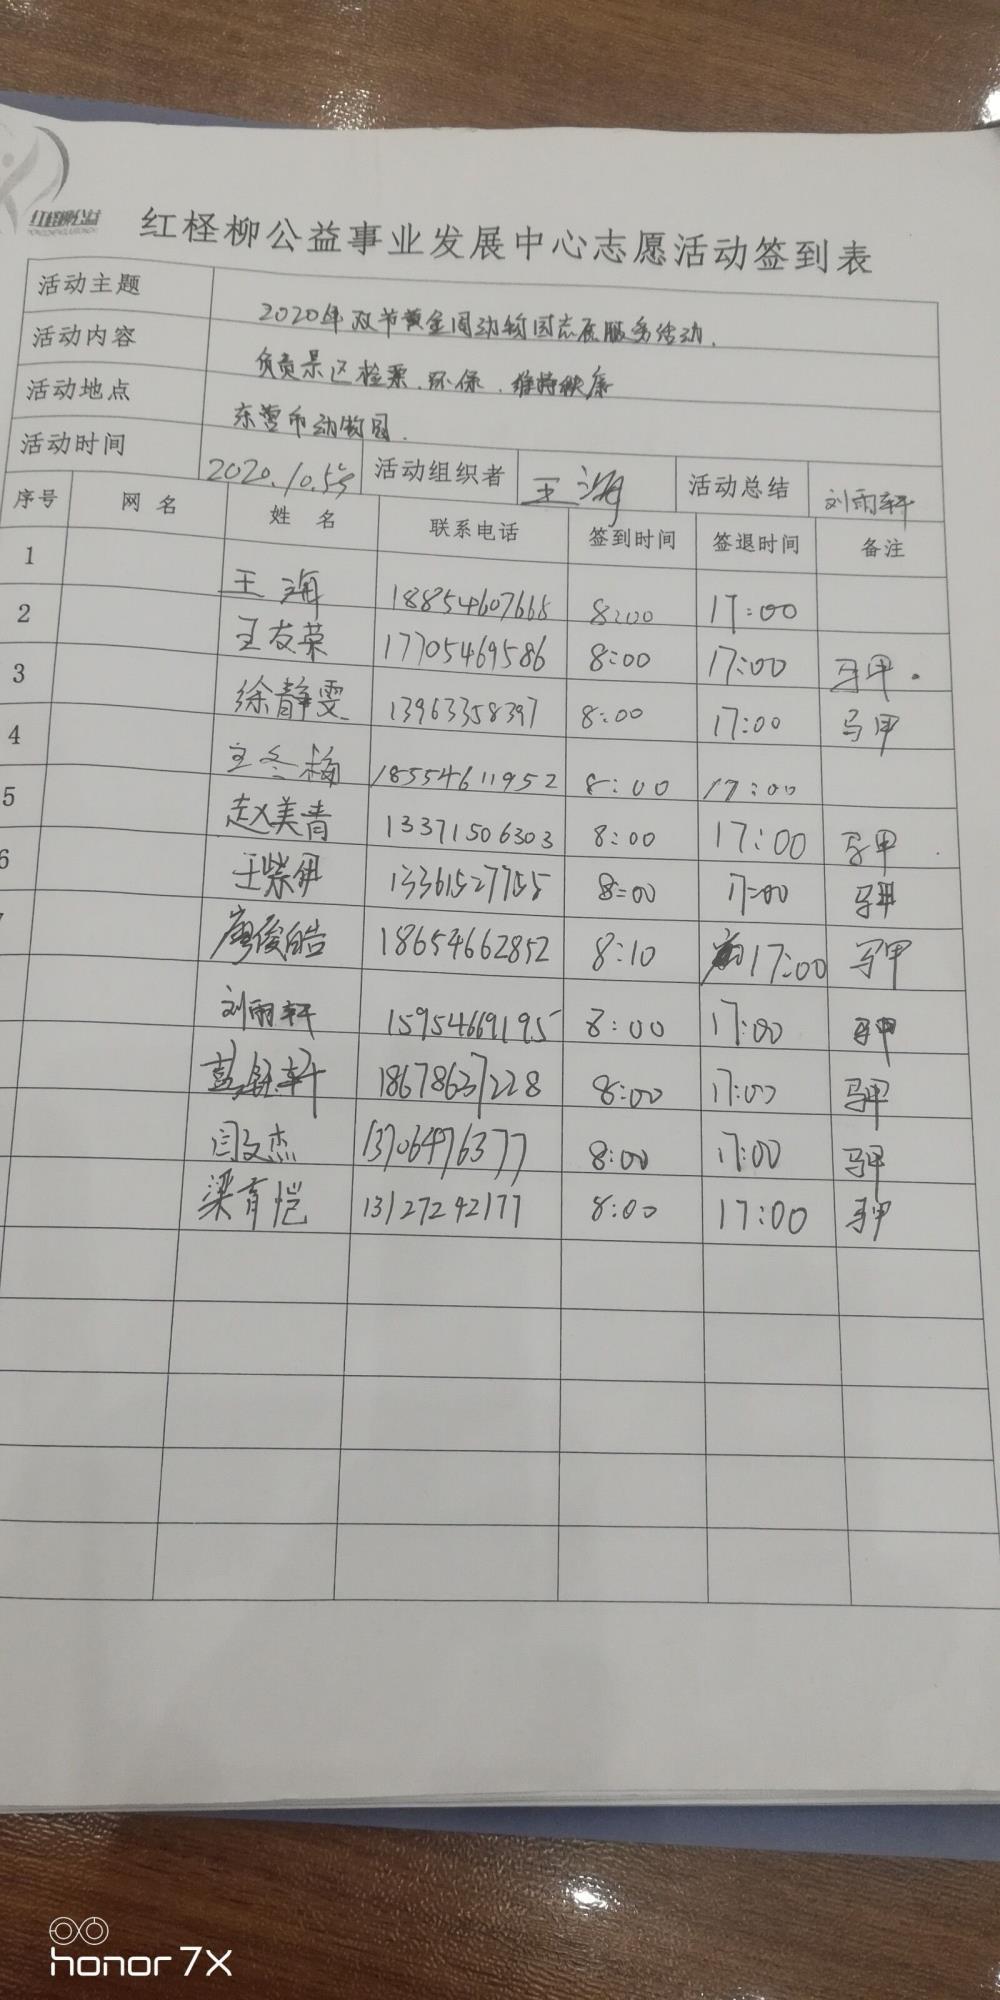 红柽柳公益
红柽柳公益事业发展中心志愿活动签到表
活动主题 2020年双节黄金周动物园志愿服务活动.
活动内容 负责景区检票.环保.维持秩序
活动地点 东营市动物园.
活动时间 2020.10.5号 活动组织者 王海 活动总结 刘雨轩
序号 网名 姓名 联系电话 签到时间 签退时间 备注
1 王海 18854607668 8:00 17:00
2 王友荣 17705469586 8:00 17:00 马甲.
3 徐静雯 13963358397 8:00 17:00 马甲
4 王冬梅 18554611952 8:00 17:00
5 赵美青 13371506303 8:00 17:00 马甲
6 王紫伊 13361527755 8:00 17:00 马甲
廖俊皓 18654662852 8:10 17:00 马甲
刘雨轩 15954669195 8:00 17:00 马甲
轩 18678637228 8:00 17:00 马甲
闫文杰 13706476377 8:00 17:00 马甲
梁育恺 13127242177 8:00 17:00 马甲
honor 7X